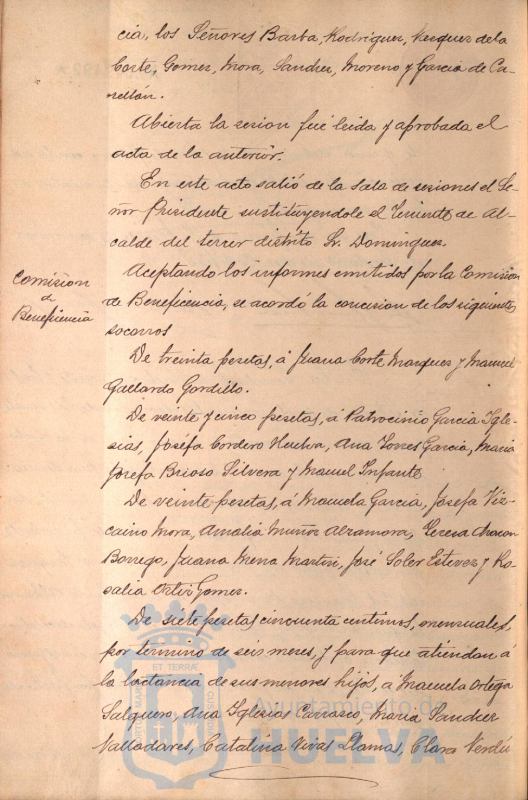 cia, los Señores Barba, Rodriguez, Vazquez de la
Corte, Gomez, Mora, Sanchez, Moreno y Garcia de Ca-
rellán.
Abierta la sesion fué leida y aprobada el
acta de la anterior.
En este acto salió de la Sala de sesiones el Se-
ñor Presidente sustituyendole el Teniente de Al-
calde del tercer distrito Sr. Dominguez.
Comision
de
Beneficencia
Aceptando los informes emitidos por la Comision
de Beneficencia, se acordó la concesion de los siguientes
socorros
De treinta pesetas, á Juana Corte Marquez y Manuel
Gallardo Gordillo.
De veinte y cinco pesetas, á Patrocinio Garcia Igle-
sias, Josefa Cordero Huelva, Ana Torres Garcia, Maria
Josefa Brioso Silvera y Manuel Infante
De veinte pesetas, á Manuela Garcia, Josefa Viz-
caino Mora, Amalia Muñoz Alzamora, Teresa
Borrego, Juana Mena Martin, José Soler Estevez y Ro-
salia Ortiz Gomez.
De siete pesetas cincuenta centimos, mensuales,
por termino de seis meses, y para que atiendan á
la lactancia de sus menores hijos, á Manuela Ortega
Salguero, Ana Iglesias Carrasco, Maria Sanchez
Valladares, Catalina Vivas Llamas, Clara Verdú
ET TERRÆ
Ayuntamiento de
HUELVA